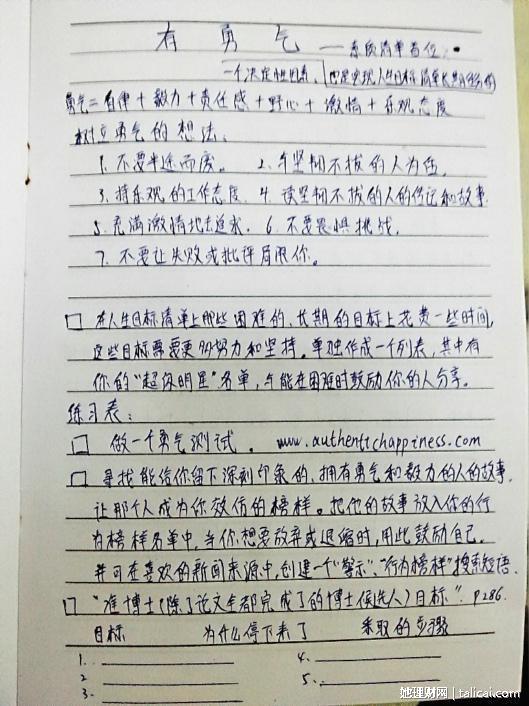 有 勇 气 ——素质清单首位:
一个决定性因素,也是实现人生目标清单长期任务的
勇气=自律+毅力+责任感+野心+激情+乐观态度
树立勇气的想法:
1. 不要半途而废。 2. 与坚韧不拔的人为伍。
3. 持乐观的工作态度. 4. 读坚韧不拔的人的传记和故事.
5. 充满激情地去追求. 6. 不要畏惧挑战.
7. 不要让失败或批评局限你。
□ 在人生目标清单上那些困难的、长期的目标上花费一些时间,
这些目标需要更多努力和坚持。单独作成一个列表,其中有
你的“超级明星”名单,与能在困难时鼓励你的人分享。
练习表:
□ 做一个勇气测试。www.authentichappiness.com
□ 寻找能给你留下深刻印象的,拥有勇气和毅力的人的故事.
让那个人成为你效仿的榜样。把他的故事放入你的行
为榜样名单中,当你想要放弃或退缩时,用此鼓励自己.
并可在喜欢的新闻来源中,创建一个“警示”、“行为榜样”搜索短语.
□ “准博士(除了论文全都完成了的博士候选人)目标”. P286.
目标 为什么停下来了 采取的步骤
1. 4.
2 5.
3.
她理财网 | talicai.com